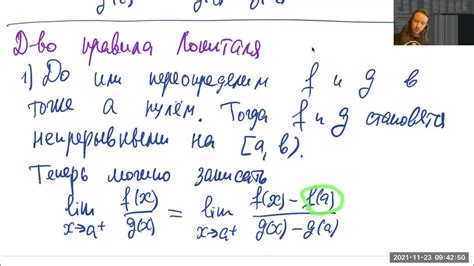 Д-во правила Лопиталя
1) До или переопределим f и g в
тоже a нулём. Тогда f и g становятся
непрерывными на [a, b).
Теперь можно записать
lim x→a+ f(x)/g(x) = lim x→a+ (f(x) - f(a))/(g(x) - g(a))
2021-11-23 09:42:50